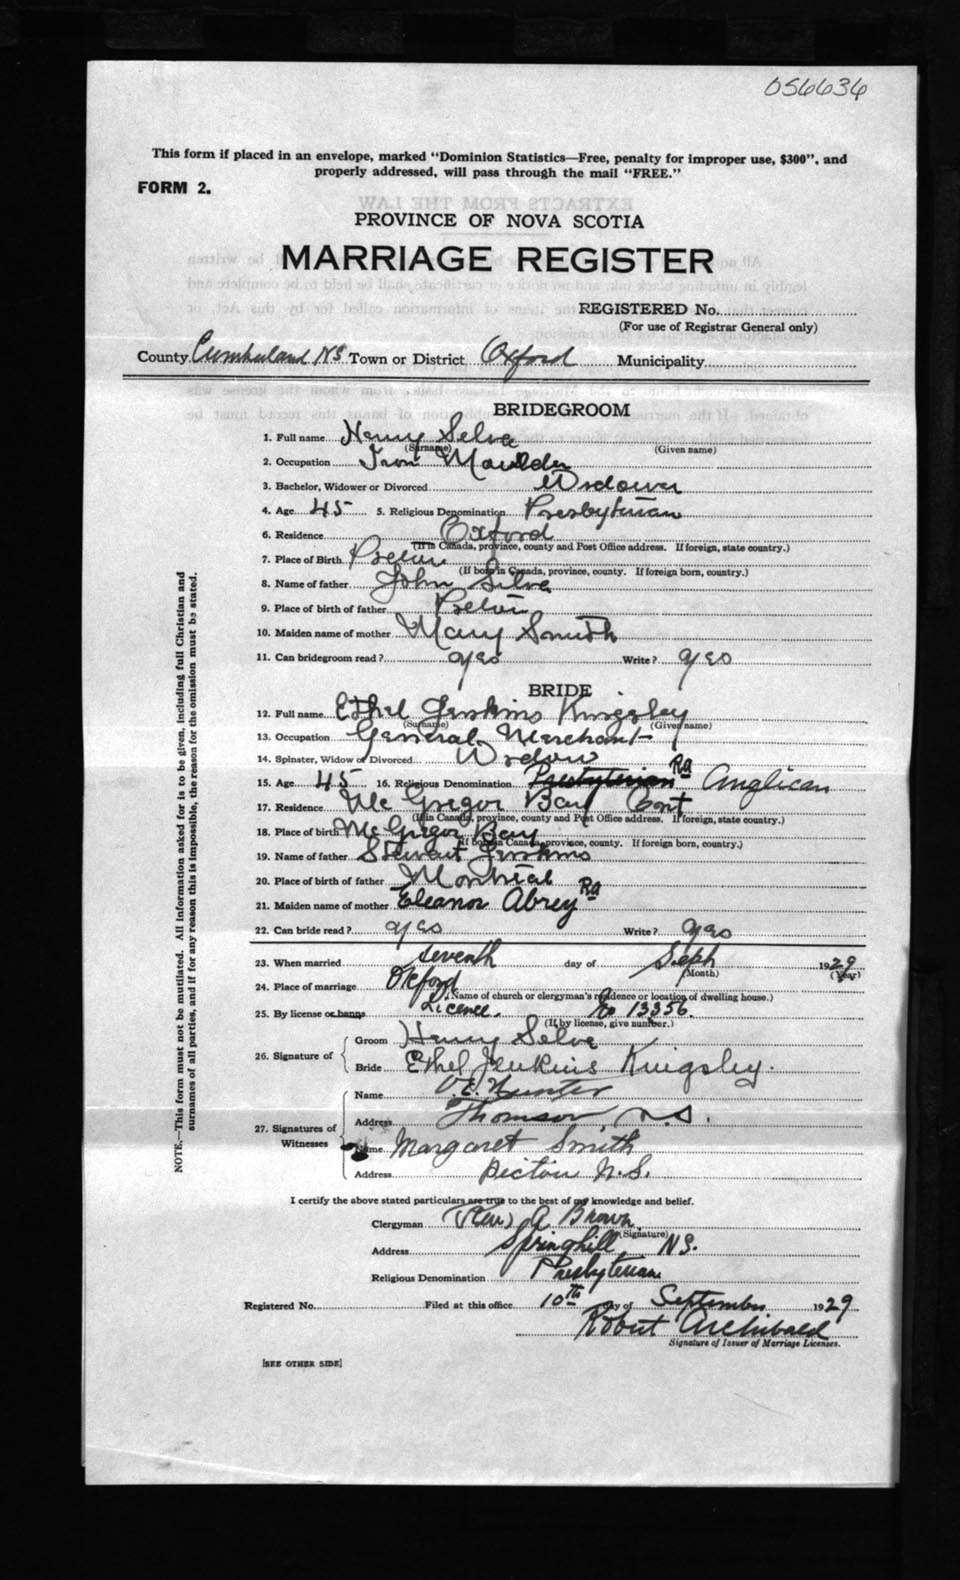 056636
This form if placed in an envelope, marked "Dominion Statistics—Free, penalty for improper use, $300", and
properly addressed, will pass through the mail "FREE."
FORM 2.
PROVINCE OF NOVA SCOTIA
MARRIAGE REGISTER
REGISTERED No.
(For use of Registrar General only)
County Cumberland NS Town or District Oxford Municipality
BRIDEGROOM
1. Full name Henry Selve
(Surname) (Given name)
2. Occupation Iron Moulder
3. Bachelor, Widower or Divorced Widower
4. Age 45 5. Religious Denomination Presbyterian
6. Residence Oxford
(If in Canada, province, county and Post Office address. If foreign, state country.)
7. Place of Birth
(If born in Canada, province, county. If foreign born, country.)
8. Name of father John Selve
9. Place of birth of father
10. Maiden name of mother Mary Smith
11. Can bridegroom read? yes Write? yes
BRIDE
12. Full name Ethel Jenkins Kingsley
(Surname) (Given name)
13. Occupation General Merchant
14. Spinster, Widow or Divorced Widow
15. Age 45 16. Religious Denomination Presbyterian Ra Anglican
17. Residence Mc Gregor Bay Ont
(If in Canada, province, county and Post Office address. If foreign, state country.)
18. Place of birth Mc Gregor Bay
(If born in Canada, province, county. If foreign born, country.)
19. Name of father Stewart Jenkins
20. Place of birth of father Montreal
21. Maiden name of mother Eleanor Abrey Ra
22. Can bride read? yes Write? yes
23. When married seventh day of Seph 1929
(Month) (Year)
24. Place of marriage Oxford
(Name of church or clergyman's residence or location of dwelling house.)
25. By license or banns Licence. No 13356
(If by license, give number.)
26. Signature of
Groom Henry Selve
Bride Ethel Jenkins Kingsley.
27. Signatures of Witnesses
Name Hunter
Address Thomson, N.S.
Name Margaret Smith
Address Pictou N.S.
I certify the above stated particulars are true to the best of my knowledge and belief.
Clergyman (Rev) A Brown
(Signature)
Address Springhill NS.
Religious Denomination Presbyterian
Registered No. Filed at this office 10th day of September 1929
Robert Archibald
Signature of Issuer of Marriage Licenses.
[SEE OTHER SIDE]
NOTE.—This form must not be mutilated. All information asked for is to be given, including full Christian and
surnames of all parties, and if for any reason this is impossible, the reason for the omission must be stated.